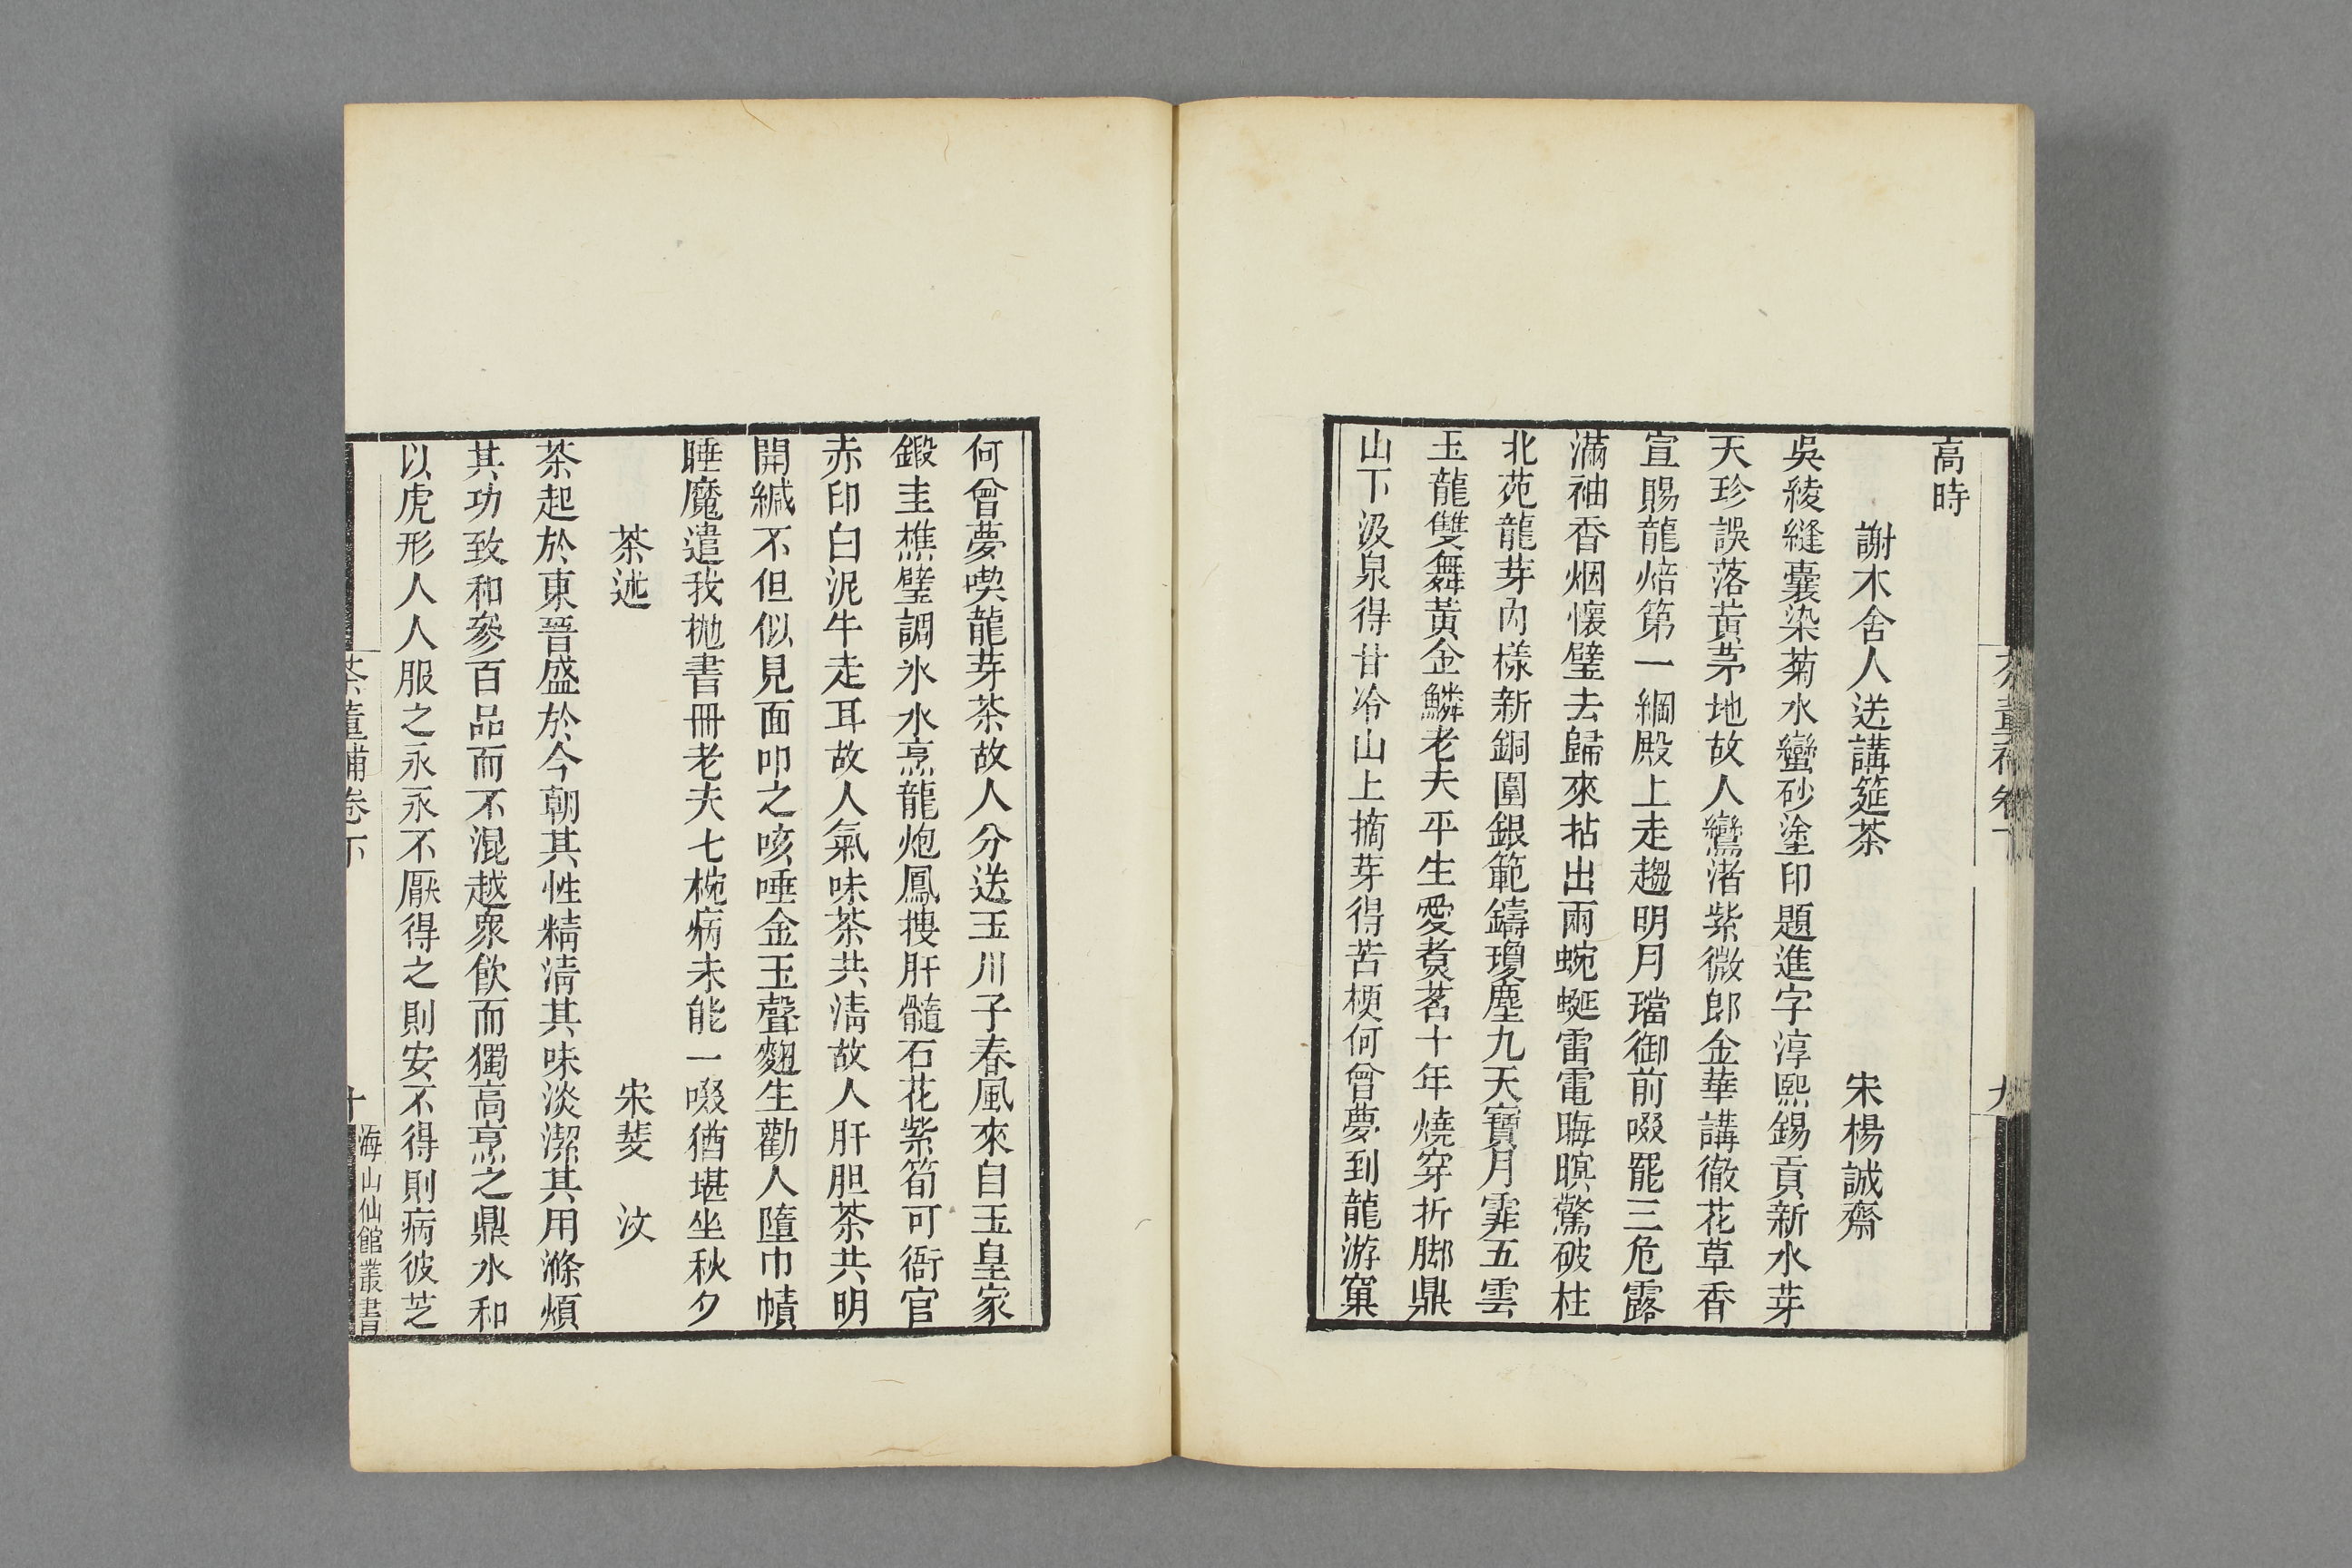 高時
謝木舍人送講筵茶 宋楊誠齋
吳綾縫囊染菊水蠻砂塗印題進字淳熙錫貢新水芽
天珍誤落黃茅地故人鸞渚紫微郎金華講徹花草香
宣賜龍焙第一綱殿上走趨明月璫御前啜罷三危露
滿袖香烟懷璧去歸來拈出兩蜿蜒雷電晦暝驚破柱
北苑龍芽內樣新銅圍銀範鑄瓊塵九天寶月霏五雲
玉龍雙舞黃金鱗老夫平生愛煑茗十年燒穿折脚鼎
山下汲泉得甘冷山上摘芽得苦梗何曾夢到龍游窠
何曾夢喫龍芽茶故人分送玉川子春風來自玉皇家
鍛圭樵璧調氷水烹龍炮鳳搜肝髓石花紫筍可衙官
赤印白泥牛走耳故人氣味茶共清故人肝胆茶共明
開緘不但似見面叩之咳唾金玉聲麴生勸人墮巾幘
睡魔遣我抛書冊老夫七椀病未能一啜猶堪坐秋夕
茶述 宋裴 汶
茶起於東晉盛於今朝其性精清其味淡潔其用滌煩
其功致和參百品而不混越衆飲而獨高烹之鼎水和
以虎形人人服之永永不厭得之則安不得則病彼芝
茶董補卷下 十 海山仙館叢書